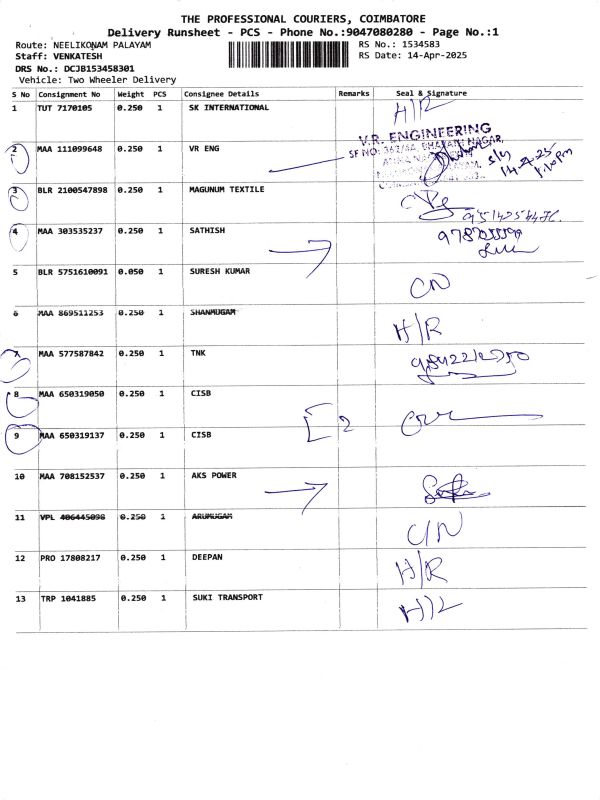 THE PROFESSIONAL COURIERS, COIMBATORE
Delivery Runsheet - PCS - Phone No.:9047080280 - Page No.:1
Route: NEELIKONAM PALAYAM RS No.: 1534583
Staff: VENKATESH RS Date: 14-Apr-2025
DRS No.: DCJB153458301
Vehicle: Two Wheeler Delivery
S No Consignment No Weight PCS Consignee Details Remarks Seal & Signature
1 TUT 7170105 0.250 1 SK INTERNATIONAL H/R
V.R. ENGINEERING
2 MAA 111099648 0.250 1 VR ENG
SF NO: BHAVANI NAGAR,
3 BLR 2100547898 0.250 1 MAGUNUM TEXTILE
4 MAA 303535237 0.250 1 SATHISH
5 BLR 5751610091 0.050 1 SURESH KUMAR CN
6 MAA 869511253 0.250 1 SHANMUGAM H/R
7 MAA 577587842 0.250 1 TNK
8 MAA 650319050 0.250 1 CISB
2
9 MAA 650319137 0.250 1 CISB
10 MAA 708152537 0.250 1 AKS POWER
11 VPL 406445098 0.250 1 ARUMUGAM C/N
12 PRO 17808217 0.250 1 DEEPAN H/R
13 TRP 1041885 0.250 1 SUKI TRANSPORT